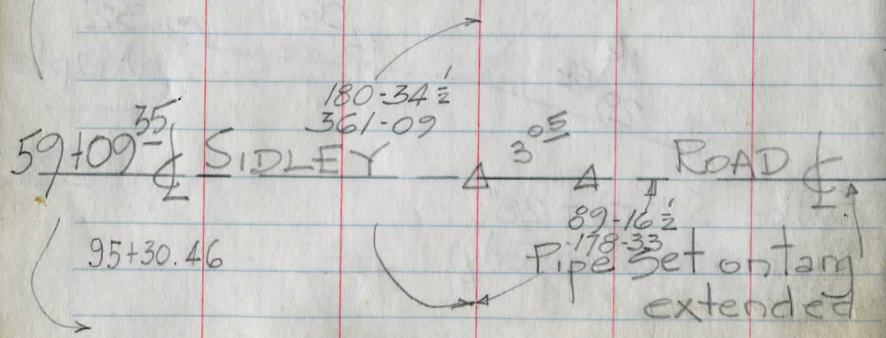 180-34 1/2
361-09
59+09 35 ℄ SIDLEY 3 05 ROAD ℄
89-16 1/2
178-33
95+30.46
Pipe Set on tang
extended